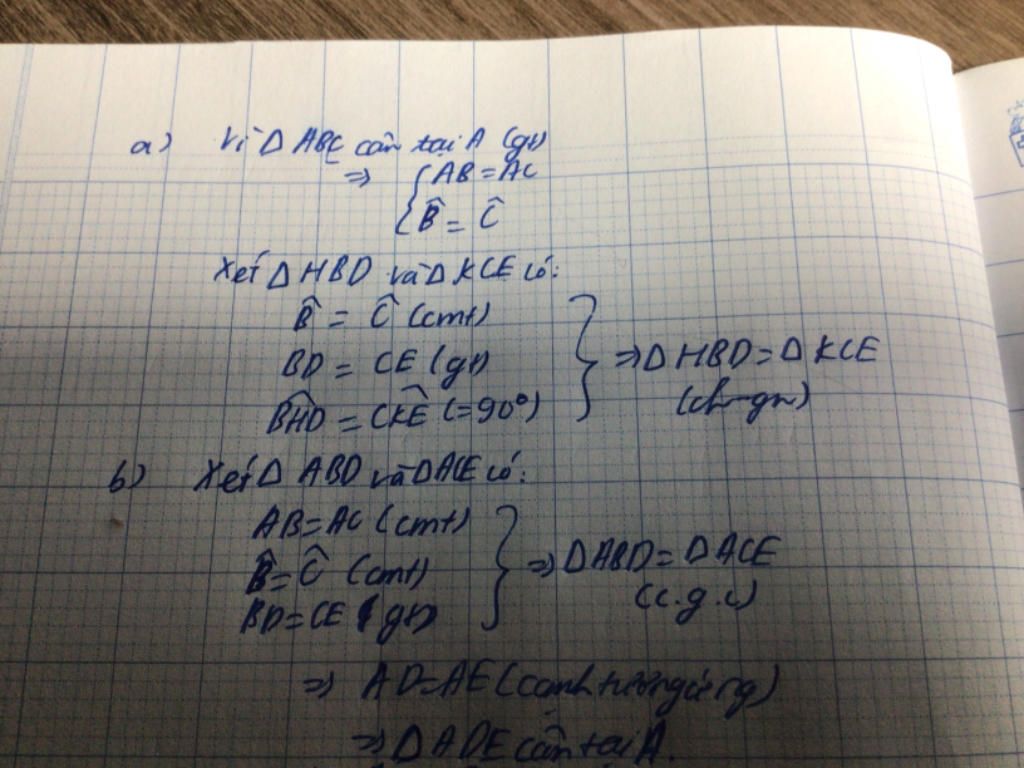 a) Vì Δ ABC cân tại A (gt)
⇒ { AB = AC
B̂ = Ĉ
Xét Δ HBD và Δ KCE có:
B̂ = Ĉ (cmt)
BD = CE (gt)
BHD̂ = CKÊ (=90°)
} ⇒ Δ HBD = Δ KCE
(ch-gn)
b) Xét Δ ABD và Δ ACE có:
AB = AC (cmt)
B̂ = Ĉ (cmt)
BD = CE (gt)
} ⇒ Δ ABD = Δ ACE
(c.g.c)
⇒ AD = AE (cạnh tương ứng)
⇒ Δ ADE cân tại A.